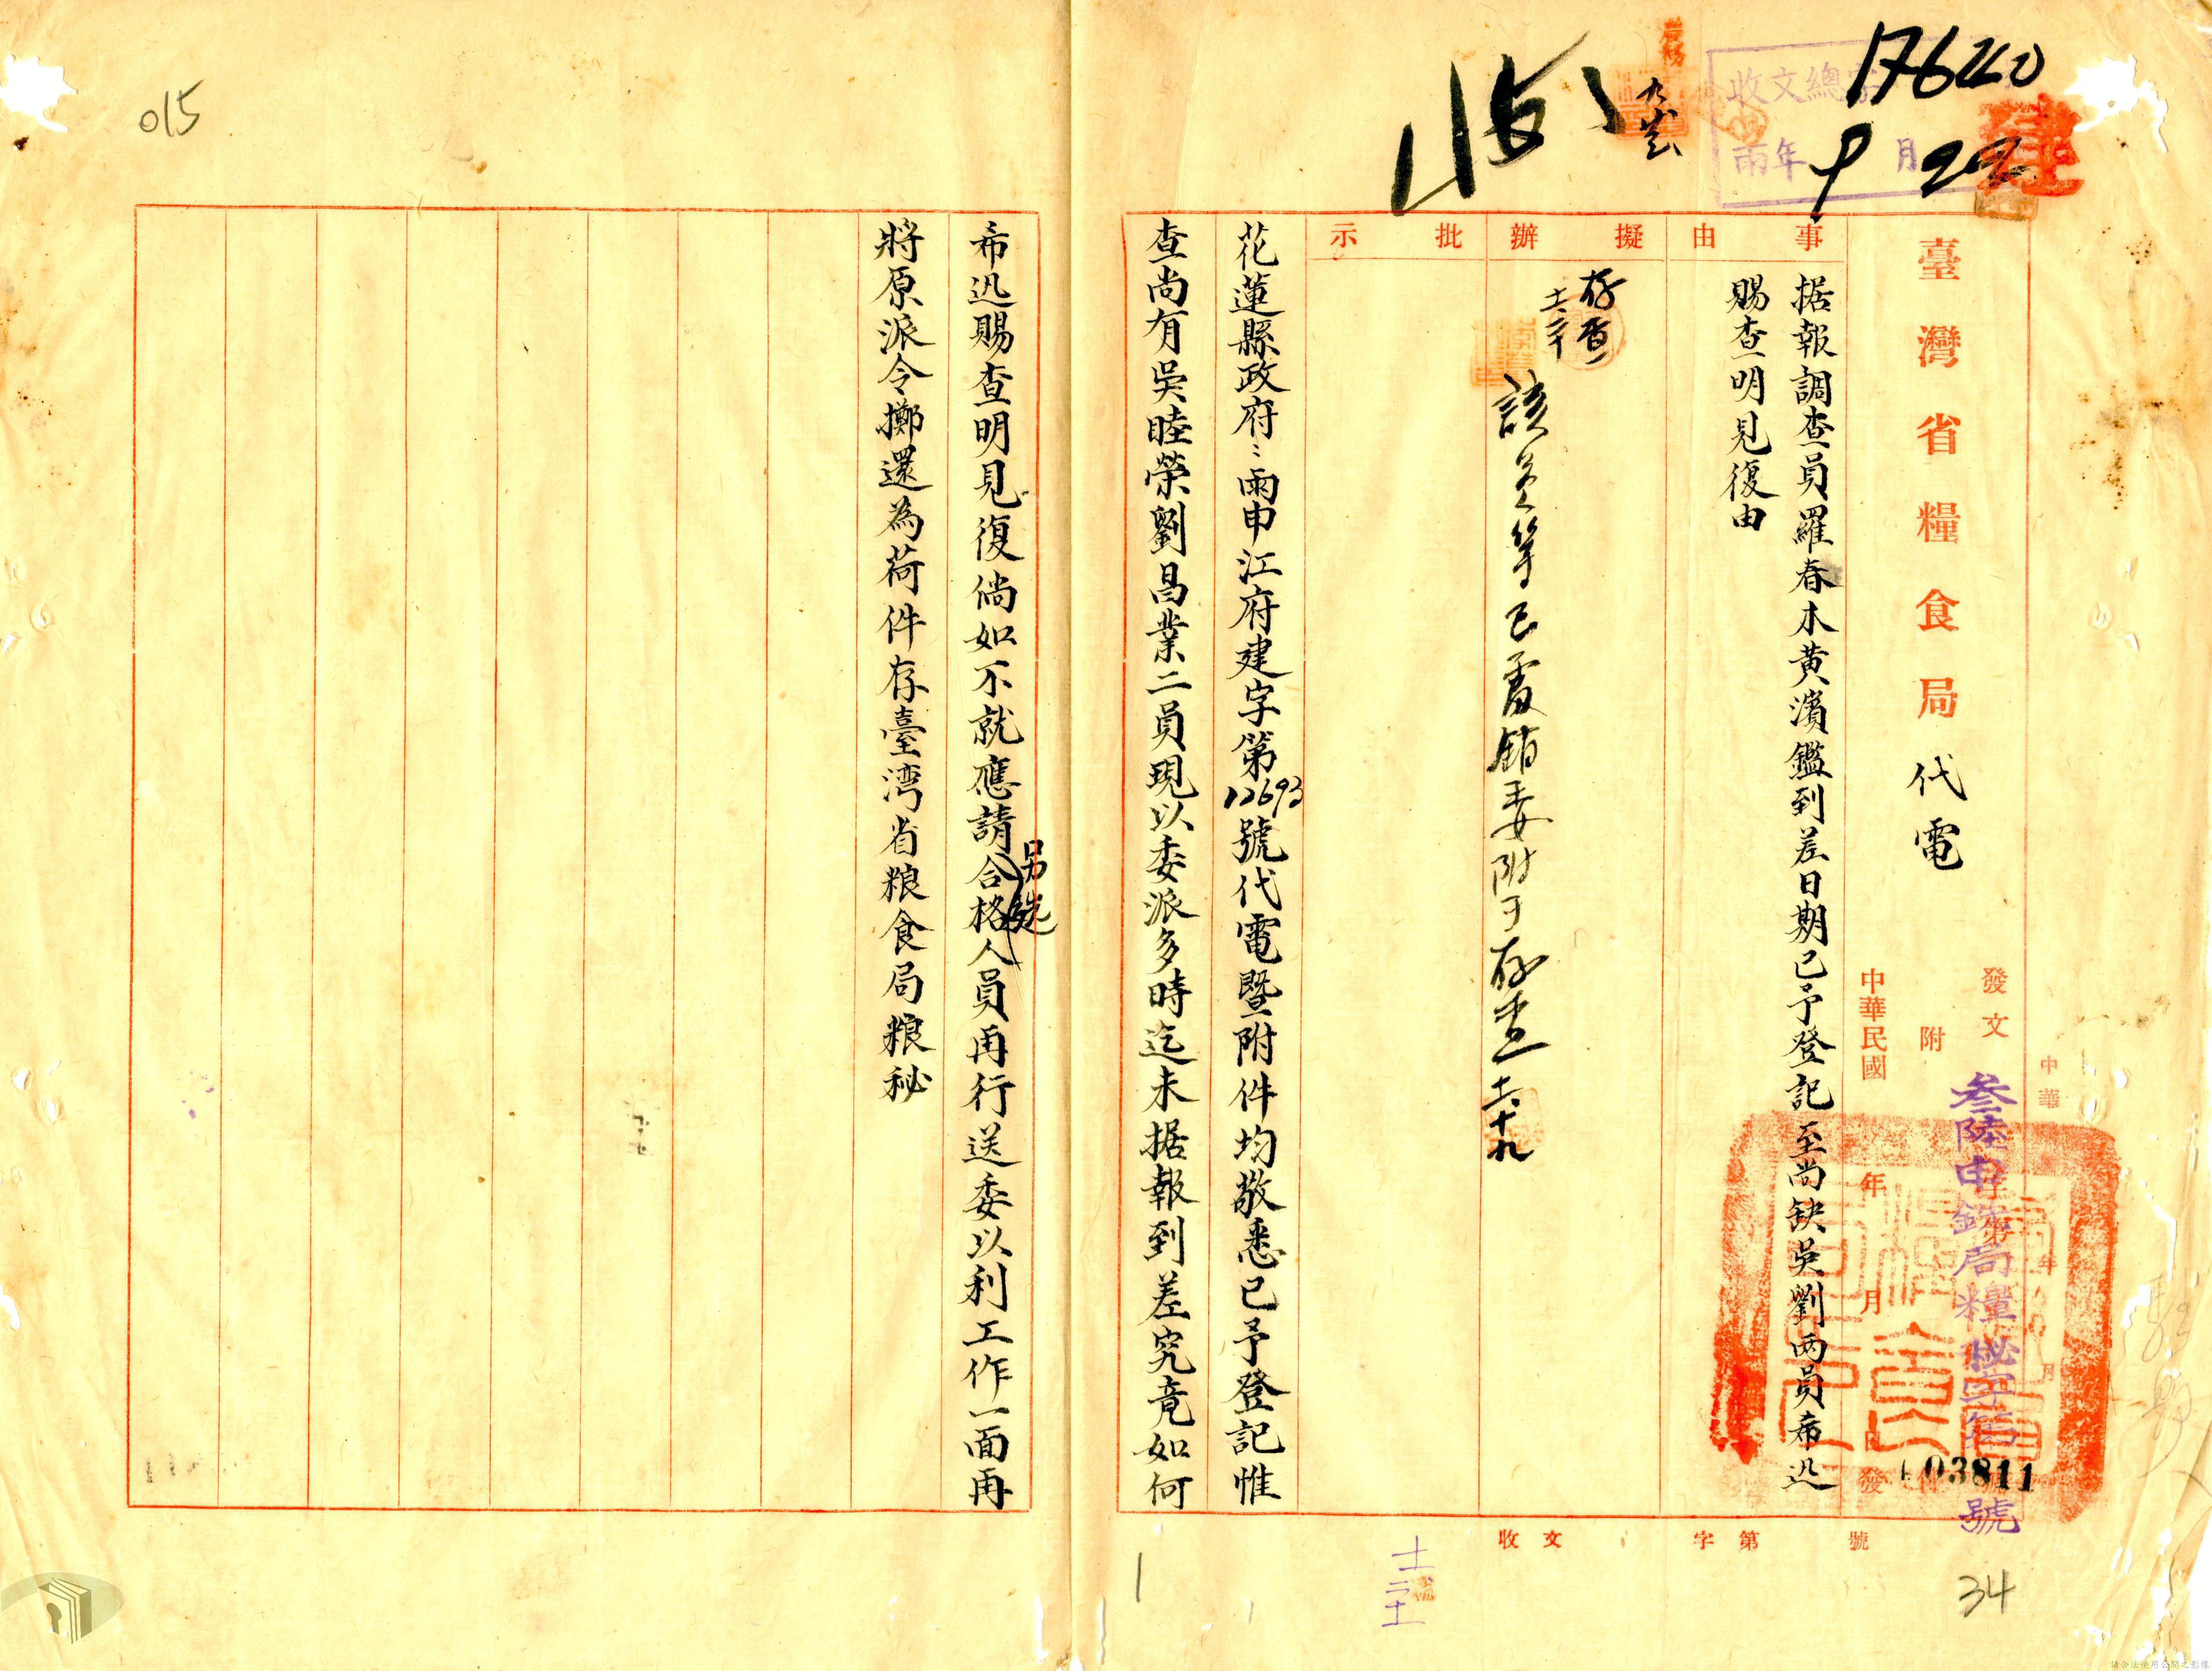 015
17640
收文總字
酉年 9 月 22
建
臺灣省糧食局代電
發文
附
中華民國 年 月 日發
叁陸申 局糧秘字第03811號
事由
据報調查員羅春木黄濱鑑到差日期已予登記至尚缺吳劉两員希迅
賜查明見復由
擬辦
存查
批示
該員等已電銷委附于存查 十九
花蓮縣政府：酉申江府建字第12693號代電暨附件均敬悉已予登記惟
查尚有吳睦榮劉昌業二員現以委派多時迄未据報到差究竟如何
希迅賜查明見復倘如不就應請另選合格人員再行送委以利工作一面再
將原派令擲還為荷件存臺湾省粮食局粮秘
收文 字第 號
34
請合法使用公開之影像